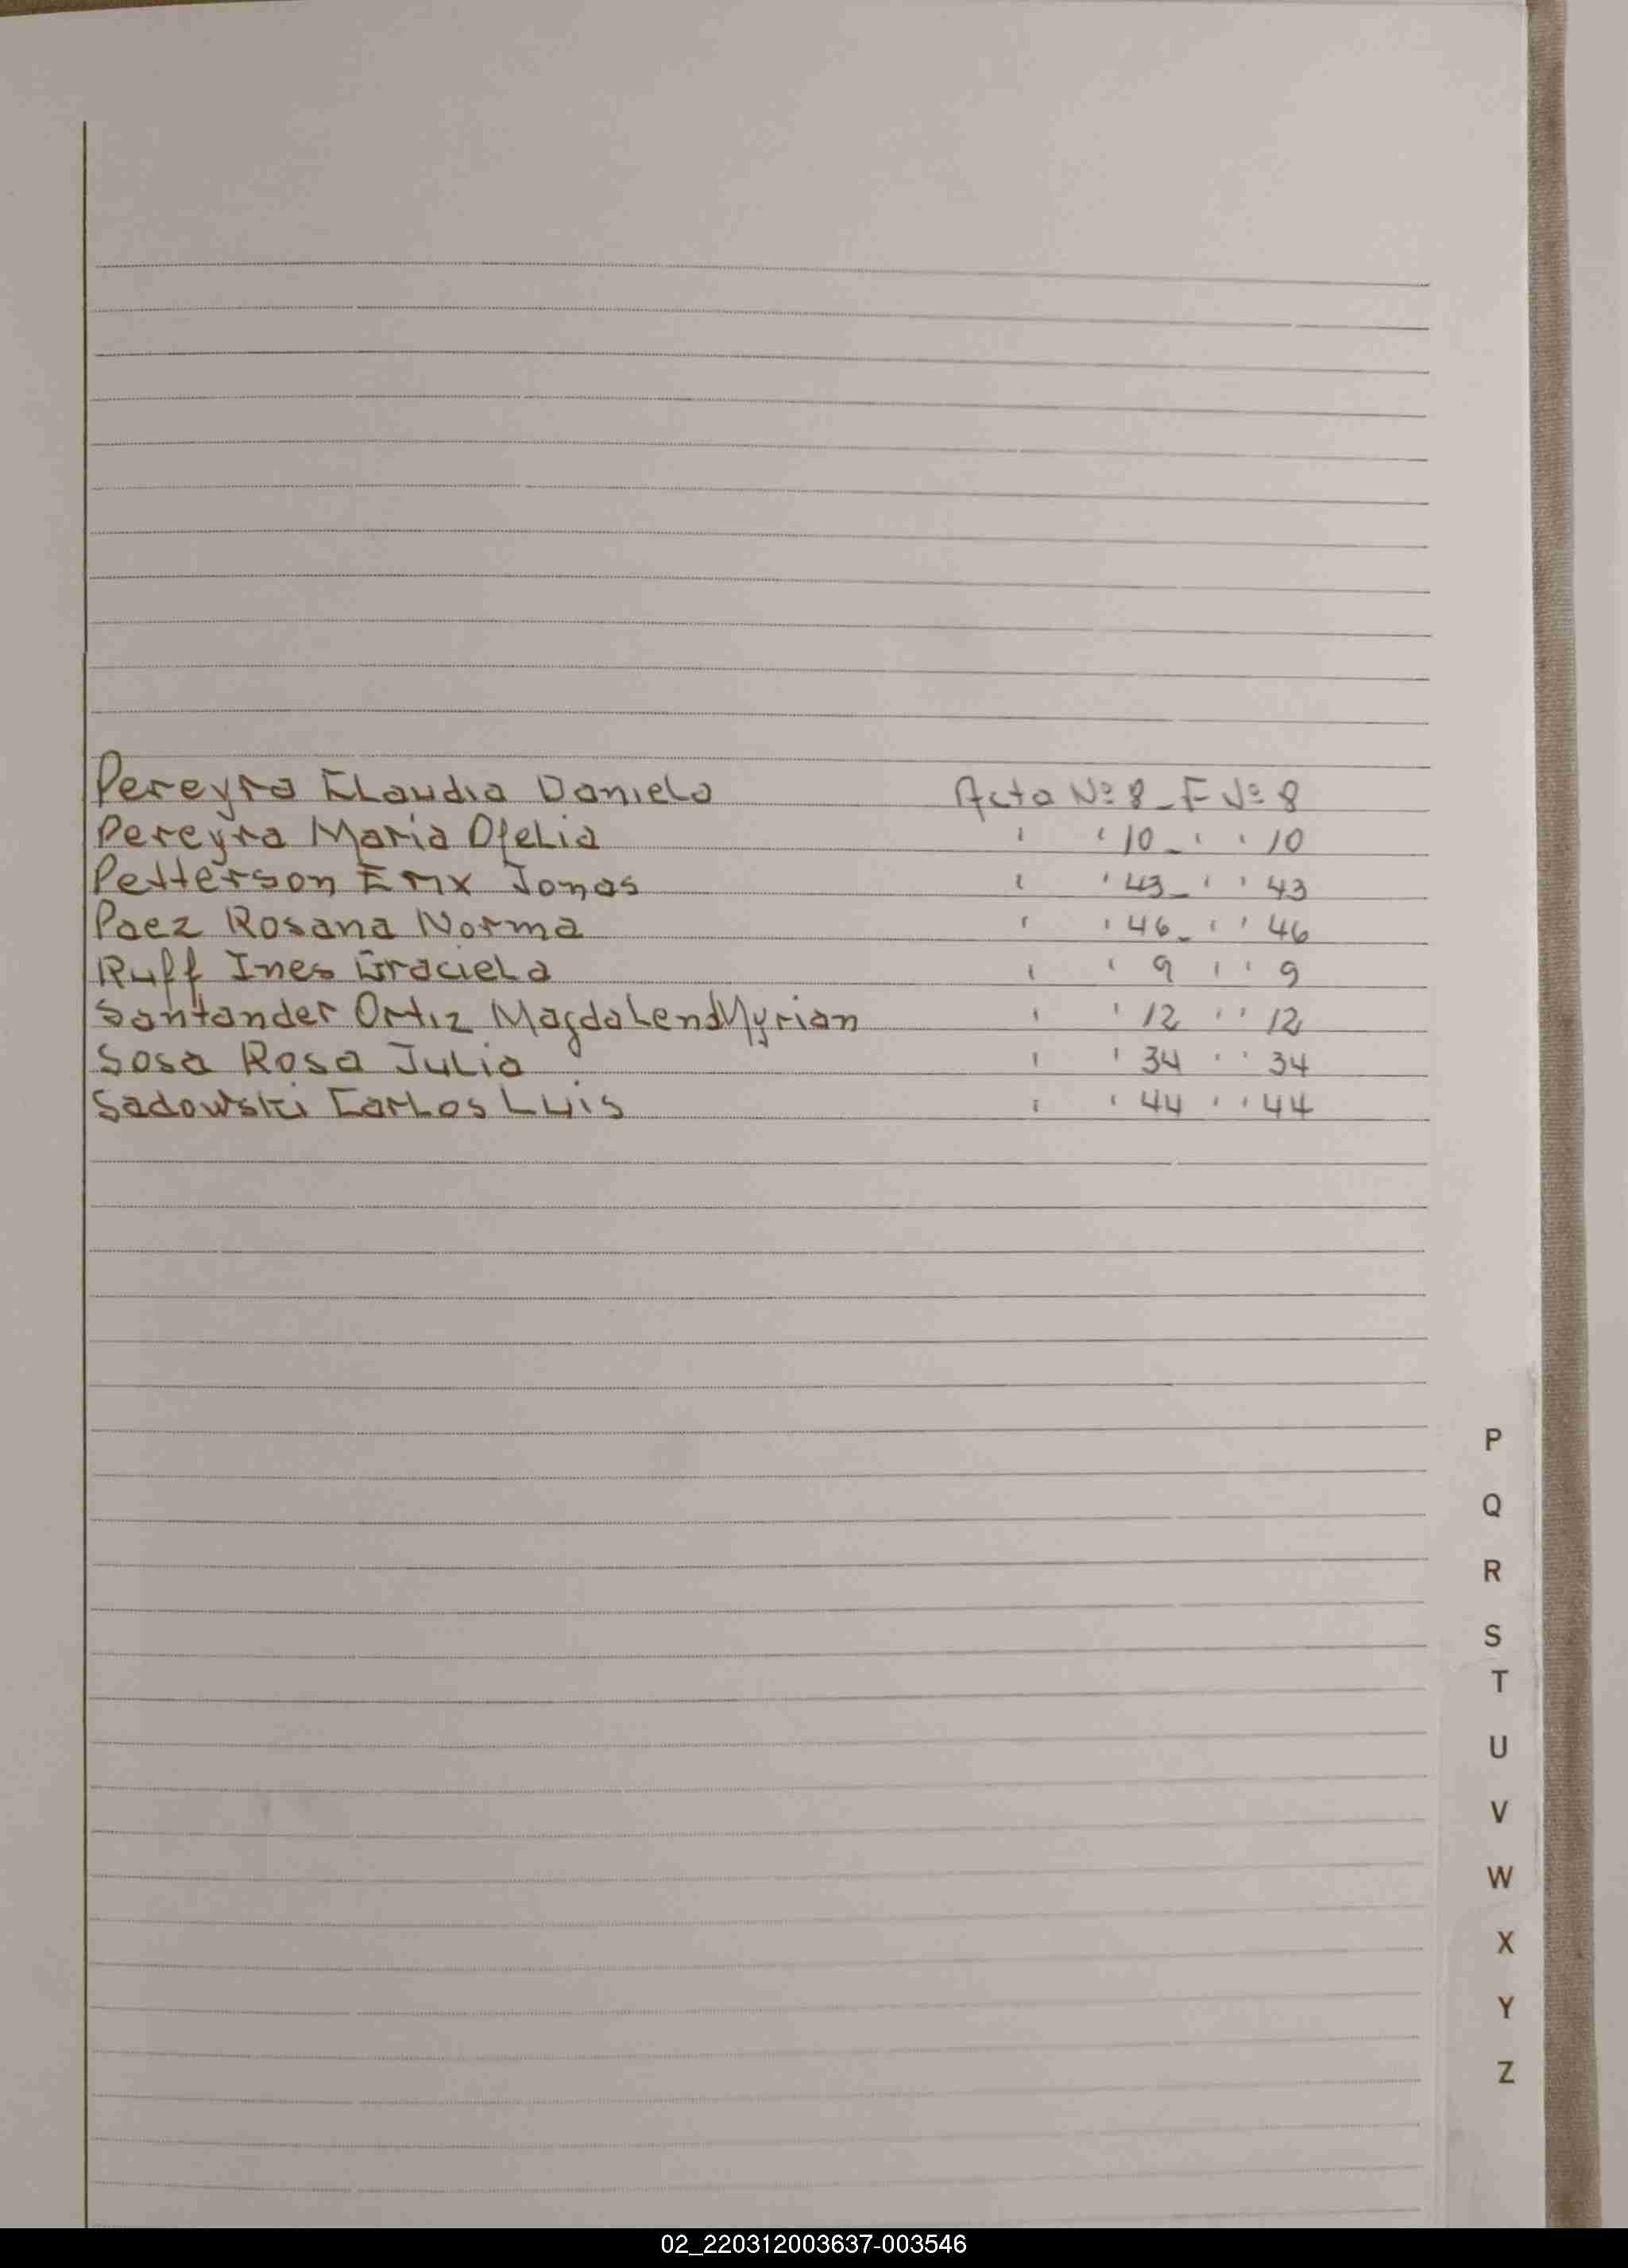 Pereyra Claudia Daniela Acta Nº 8 - F Nº 8
Pereyra Maria Ofelia " " 10 - " " 10
Petterson Jonas " " 43 - " " 43
Paez Rosana Norma " " 46 - " " 46
Ruff Ines Graciela " " 9 " " 9
Santander Ortiz Magdalena Myrian " " 12 " " 12
Sosa Rosa Julia " " 34 " " 34
Sadowski Carlos Luis " " 44 " " 44
P
Q
R
S
T
U
V
W
X
Y
Z
02_220312003637-003546